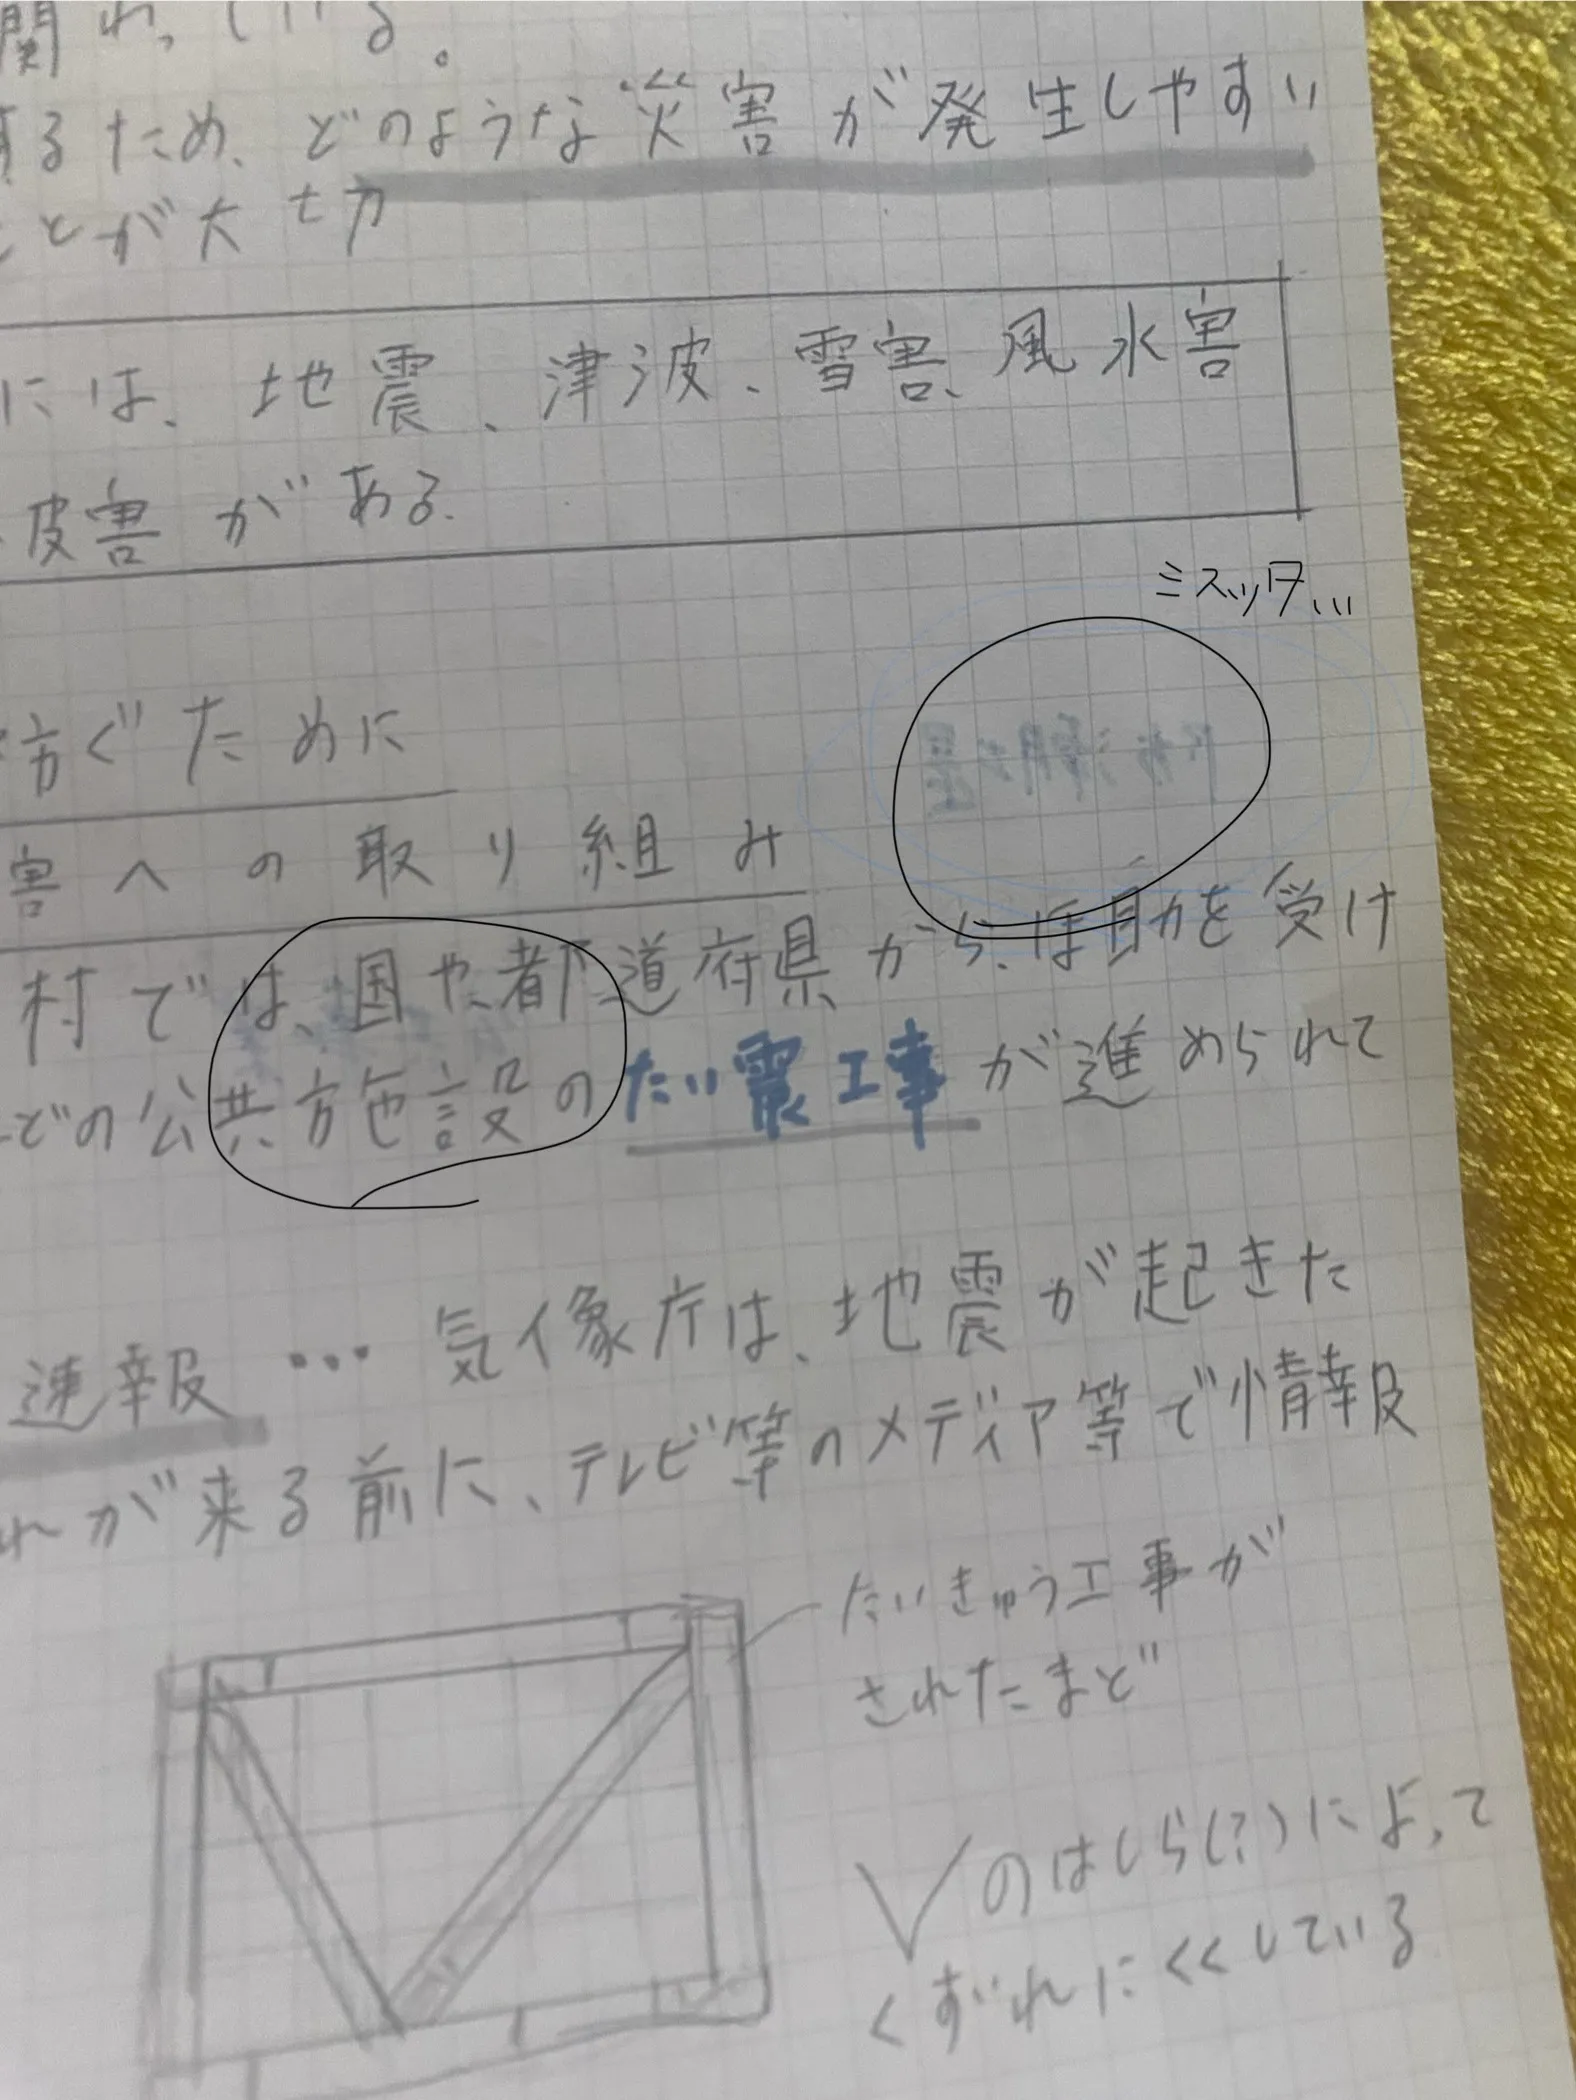 関わっている。
するため、どのような災害が発生しやすい
ことが大切
には、地震、津波、雪害、風水害
害がある。
ミスッタ...
防ぐために
害への取り組み
村では、国や都道府県から、ほ助を受け
どの公共施設のたい震工事が進められて
速報 … 気象庁は、地震が起きた
れが来る前に、テレビ等のメディア等で情報
たいきゅう工事が
されたまど
Vのはしら(?)によって
くずれにくくしている